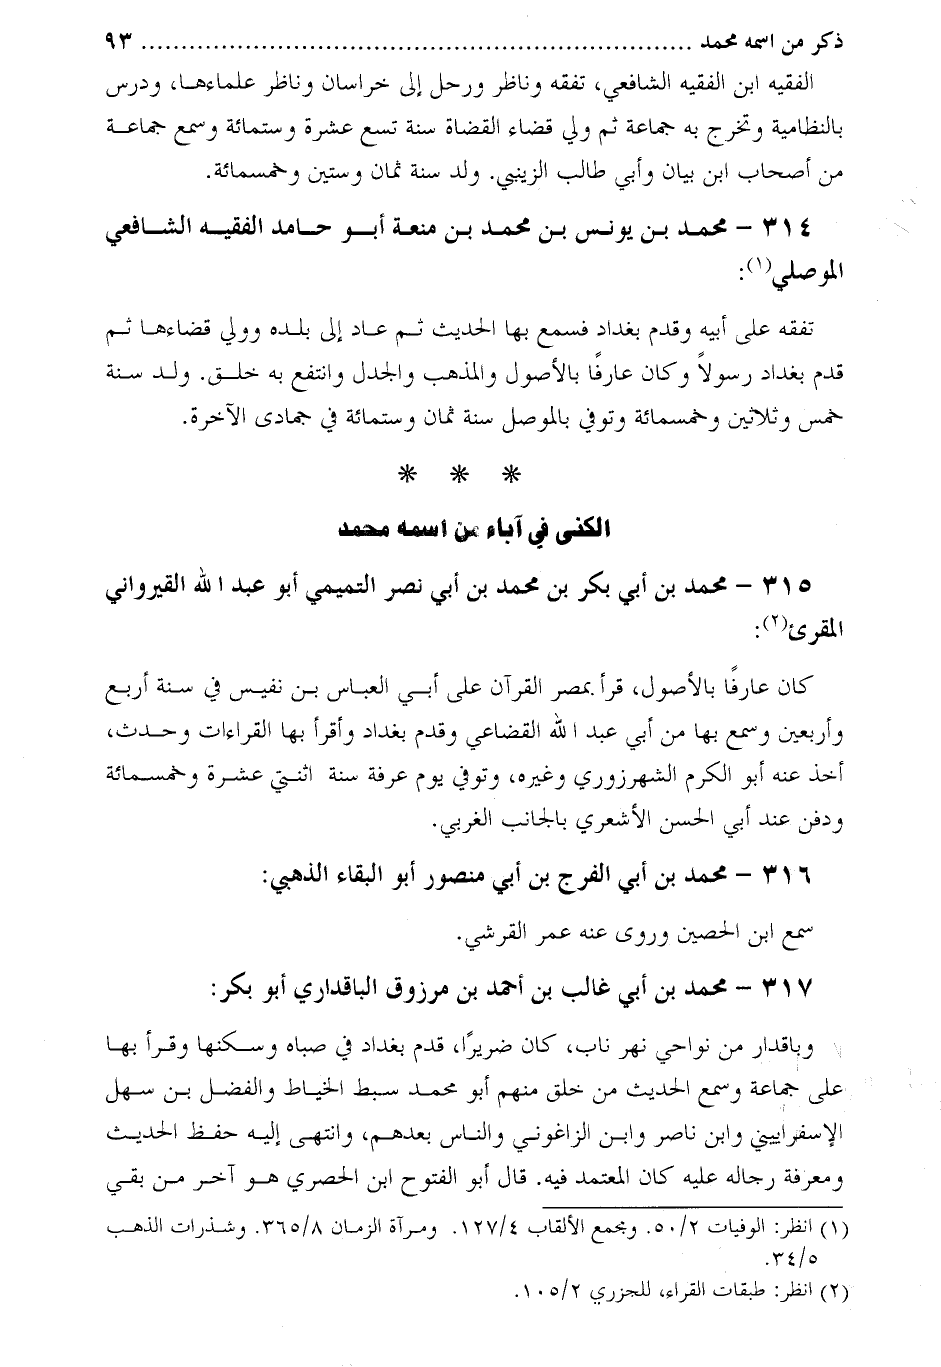 ذكر من اسمه محمد ..................................................................... ٩٣
الفقيه ابن الفقيه الشافعي، تفقه وناظر ورحل إلى خراسان وناظر علماءها، ودرس
بالنظامية وتخرج به جماعة ثم ولي قضاء القضاة سنة تسع عشرة وستمائة وسمع جماعة
من أصحاب ابن بيان وأبي طالب الزينبي. ولد سنة ثمان وستين وخمسمائة.
٣١٤ – محمد بن يونس بن محمد بن منعة أبو حامد الفقيه الشافعي
الموصلي(١):
تفقه على أبيه وقدم بغداد فسمع بها الحديث ثم عاد إلى بلده وولي قضاءها ثم
قدم بغداد رسولاً وكان عارفًا بالأصول والمذهب والجدل وانتفع به خلق. ولد سنة
خمس وثلاثين وخمسمائة وتوفي بالموصل سنة ثمان وستمائة في جمادى الآخرة.
* * *
الكنى في آباء من اسمه محمد
٣١٥ – محمد بن أبي بكر بن محمد بن أبي نصر التميمي أبو عبد الله القيرواني
المقرئ(٢):
كان عارفًا بالأصول، قرأ بمصر القرآن على أبي العباس بن نفيس في سنة أربع
وأربعين وسمع بها من أبي عبد الله القضاعي وقدم بغداد وأقرأ بها القراءات وحدث،
أخذ عنه أبو الكرم الشهرزوري وغيره، وتوفي يوم عرفة سنة اثنتي عشرة وخمسمائة
ودفن عند أبي الحسن الأشعري بالجانب الغربي.
٣١٦ – محمد بن أبي الفرج بن أبي منصور أبو البقاء الذهبي:
سمع ابن الحصين وروى عنه عمر القرشي.
٣١٧ – محمد بن أبي غالب بن أحمد بن مرزوق الباقداري أبو بكر:
وباقدار من نواحي نهر ناب، كان ضريرًا، قدم بغداد في صباه وسكنها وقرأ بها
على جماعة وسمع الحديث من خلق منهم أبو محمد سبط الخياط والفضل بن سهل
الإسفراييني وابن ناصر وابن الزاغوني والناس بعدهم، وانتهى إليه حفظ الحديث
ومعرفة رجاله عليه كان المعتمد فيه. قال أبو الفتوح ابن الحصري هو آخر من بقي
(١) انظر: الوفيات ٥٠/٢. ومجمع الألقاب ١٢٧/٤. ومرآة الزمان ٣٦٥/٨. وشذرات الذهب
٣٤/٥.
(٢) انظر: طبقات القراء، للجزري ١٠٥/٢.